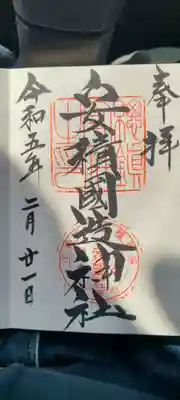 奉拝
安積國造神社
令和五年二月廿一日